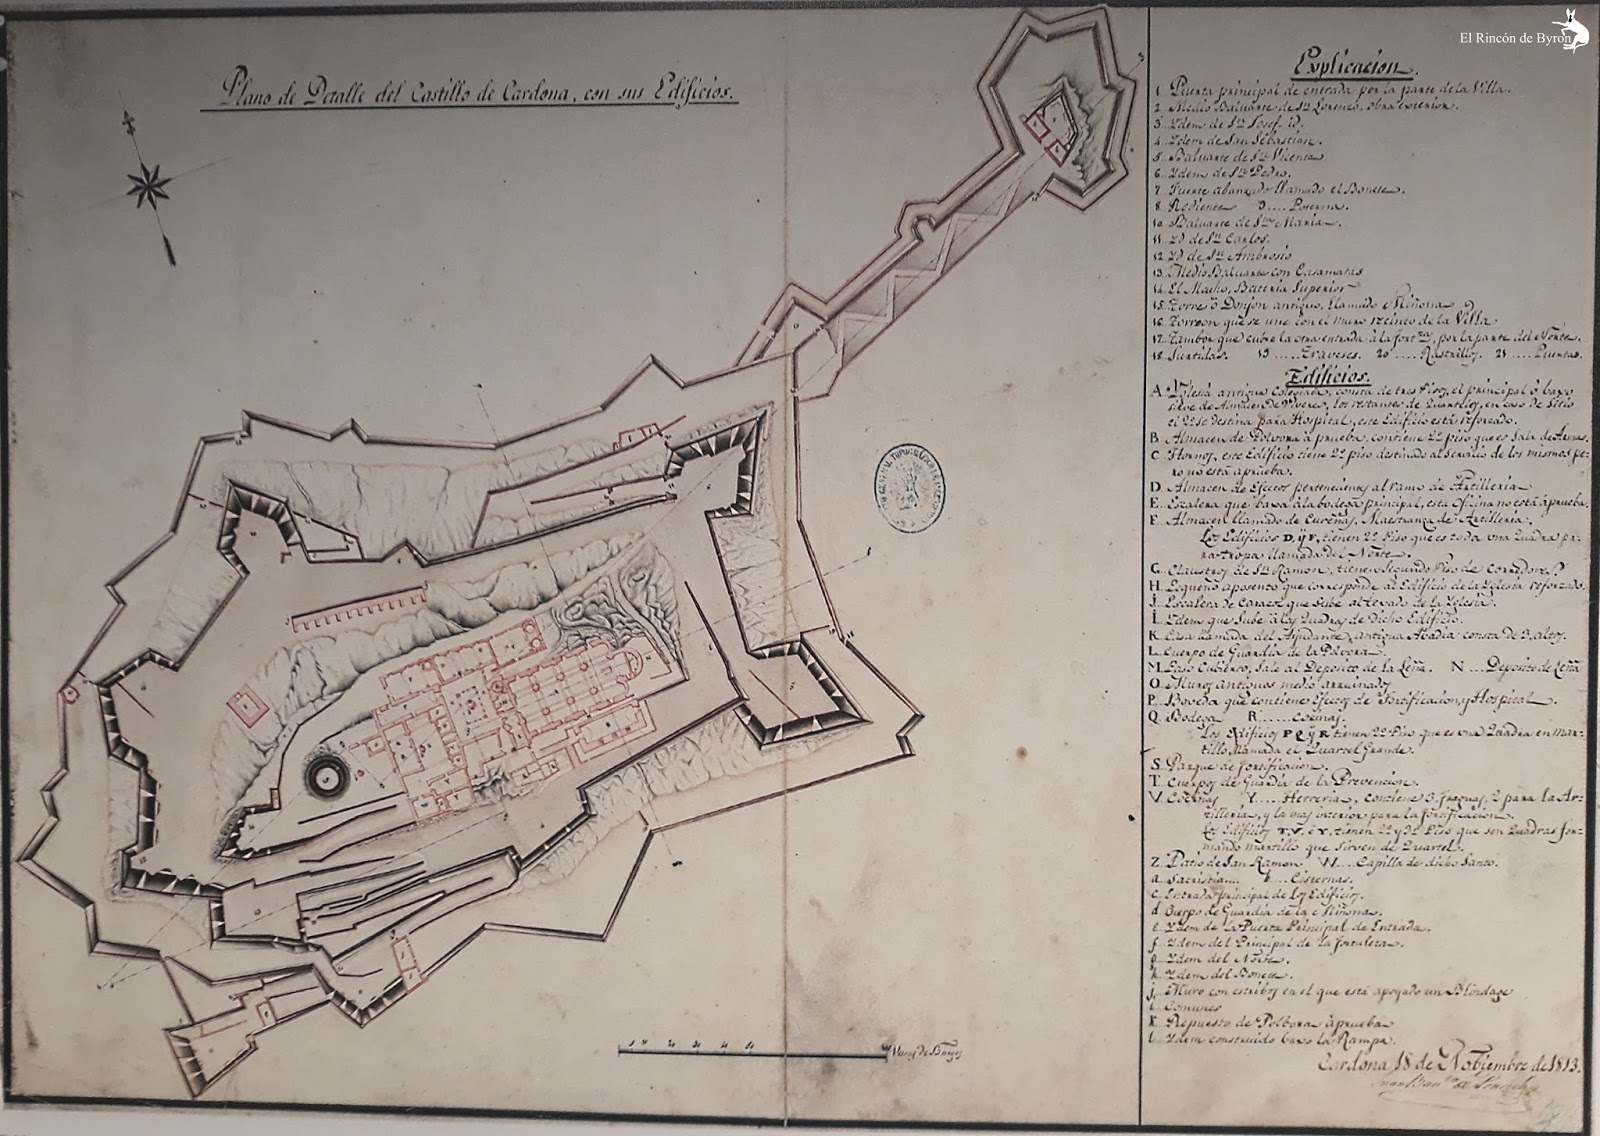 El Rincón de Byron
Plano de Detalle del Castillo de Cardona, con sus Edificios.
Explicacion.
1 Puerta principal de entrada por la parte de la Villa.
2 Medio Baluarte de Sn. Lorenzo, obra exterior.
3 Ydem de Sn. Josef. id.
4 Ydem de San Sebastian.
5 Baluarte de Sn. Vicente
6 Ydem de Sn. Pedro.
7 Fuerte abanzado llamado el Bonete.
8 Rediente 9.... Poterna.
10 Baluarte de Sta. Maria.
11 Yd de Sn. Carlos.
12 Yd de Sn. Ambrosio
13 Medio Baluarte con Casamatas
14 El Macho, Bateria Superior
15 Torre ó Donjon antiguo, llamado Miñona
16 Torreon que se une con el muro recinto de la Villa
17 Tambor que cubre la otra entrada á la fortza. por la parte del Norte.
18 Surtidas. 19.... Traveses. 20.... Rastrillos. 21.... Puentes.
Edificios.
A. Yglesia antigua Colegiata, consta de tres Pisos, el principal ó baxo
sirve de Almacen de Viveres, los restantes de Quarteles, en caso de Sitio
el 2º se destina para Hospital, este Edificio está reforzado.
B. Almacen de Polvora á prueba, contiene 2º piso que es Sala de Armas.
C. Hornos, este Edificio tiene 2º piso destinado al servicio de los mismos pe-
ro no está á prueba.
D. Almacen de Efectos pertenecientes al ramo de Artilleria
E. Escalera que baxa á la bodega principal, esta Oficina no está á prueba.
F. Almacen llamado de Cureñas, Maestranza de Artilleria.
Los Edificios D, y F, tienen 2º Piso que es toda una Quadra pa-
ra tropa llamada del Norte.
G. Claustros de Sn. Ramon, tienen Segundo Piso de Corredores.
H. Pequeño aposento que corresponde al Edificio de la Yglesia reforzado.
J. Escalera de Caracol que Sube al texado de la Yglesia.
I. Ydem que Sube á las Quadras de dicho Edificio.
K. Casa llamada del Ayudante, antigua Abadia consta de 3 altos.
L. Cuerpo de Guardia de la Polvora.
M. Paso Cubierto, sale al Deposito de la Leña. N.... Deposito de Leña
O. Muros antiguos medio arruinados
P. Boveda que contiene Efectos de Fortificacion, y Hospital.
Q. Bodega R...... Cocinas.
Los Edificios P Q y R tienen 2º Piso que es una Quadra en mar-
tillo, llamada el Quartel Grande.
S. Parque de fortificacion.
T. Cuerpos de Guardia de la Prevencion.
V. Cocinas Y.... Herreria, contiene 3 fraguas, 2 para la Ar-
tilleria, y la mas interior para la fortificacion.
Los Edificios T, V, é Y, tienen 2º y 3º Piso que son Quadras for-
mando martillo que sirven de Quartel.
Z. Patio de San Ramon W.... Capilla de dicho Santo.
a. Sacristia.... b.... Cisternas.
c. Entrada principal de los Edificios.
d. Cuerpo de Guardia de la Miñona.
e. Ydem de la Puerta Principal de Entrada.
f. Ydem del Principal de la fortaleza.
g. Ydem del Norte.
h. Ydem del Bonete.
j. Muro con estribos en el que está apoyado un Blindage
i. Comunes
k. Repuesto de Polbora á prueba
l. Ydem construido baxo la Rampa.
Cardona 18 de Nobiembre de 1813.
Varas de Burgos